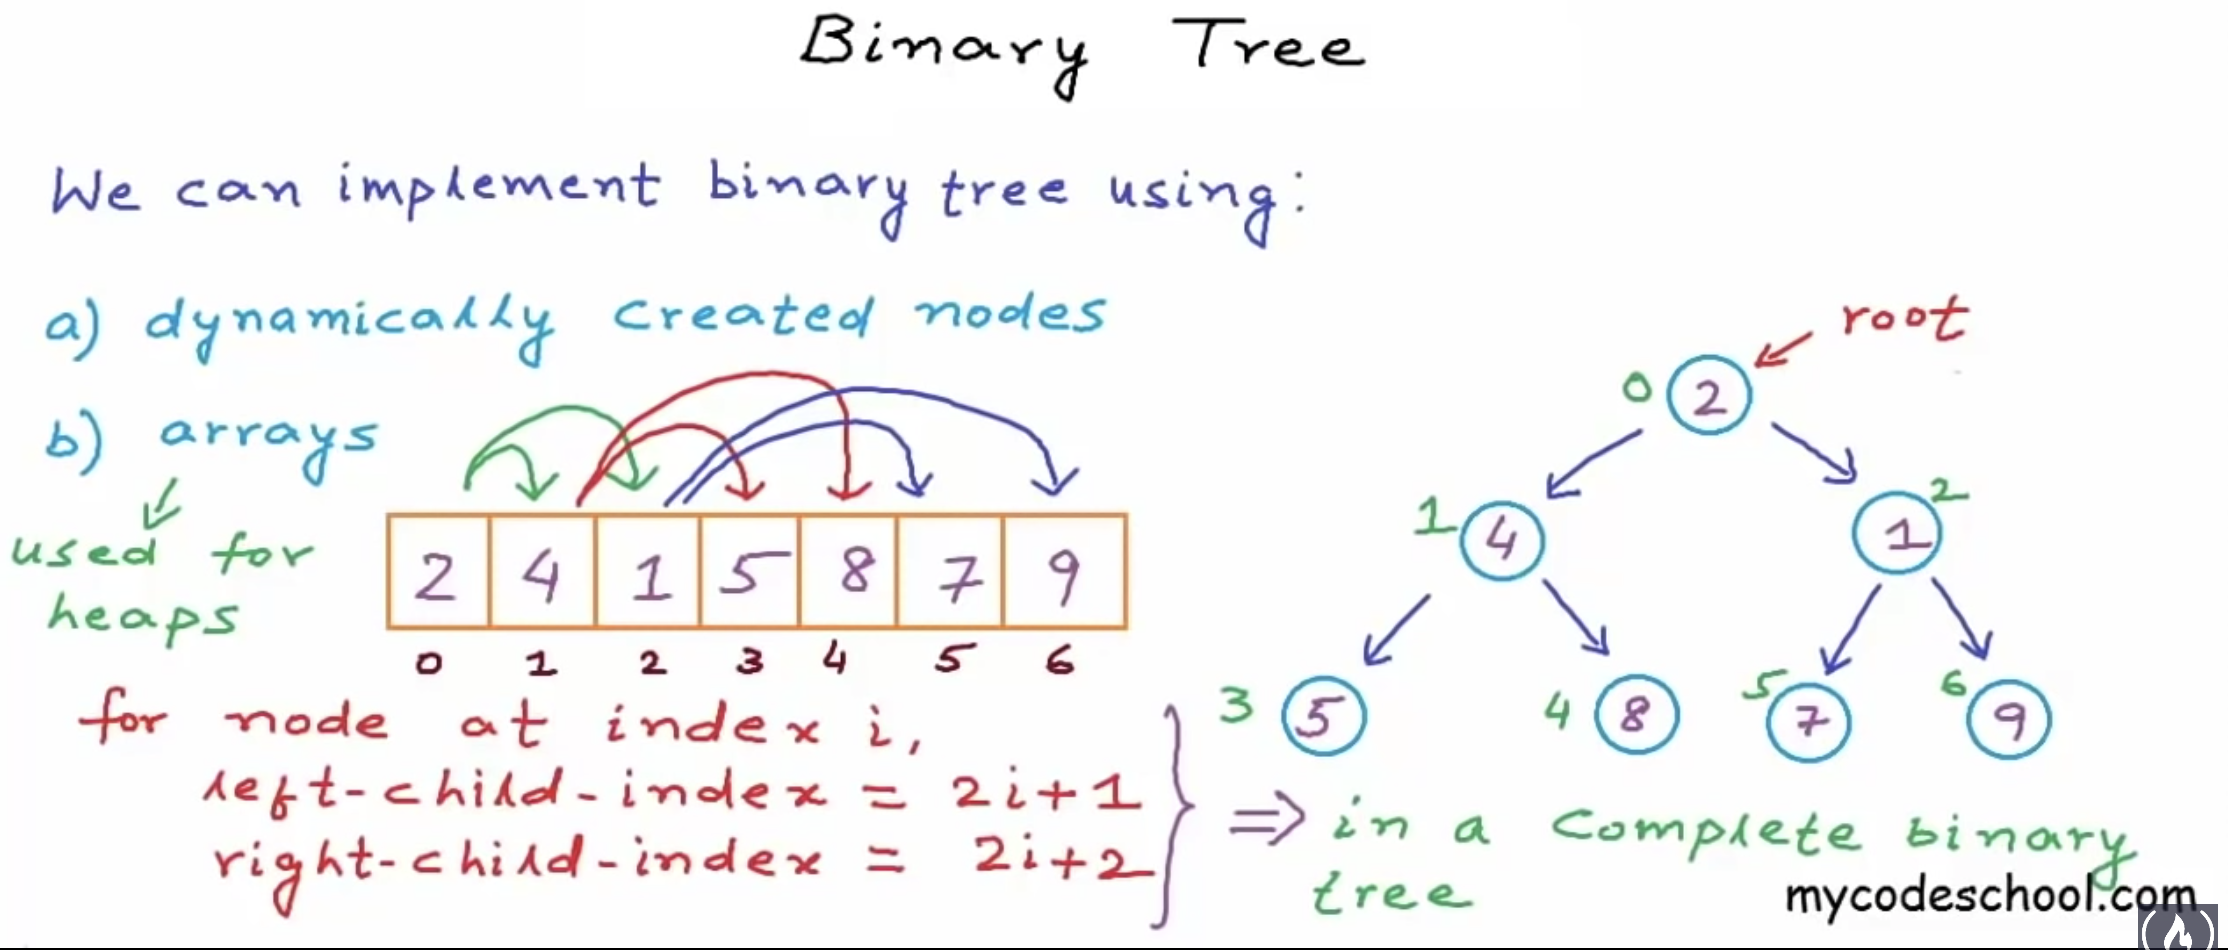 Binary Tree
We can implement binary tree using:
a) dynamically created nodes
b) arrays
used for
heaps
2 4 1 5 8 7 9
0 1 2 3 4 5 6
for node at index i,
left-child-index = 2i+1
right-child-index = 2i+2
⇒ in a complete binary
tree
root
0 2
1 4 1 2
3 5 4 8 5 7 6 9
mycodeschool.com